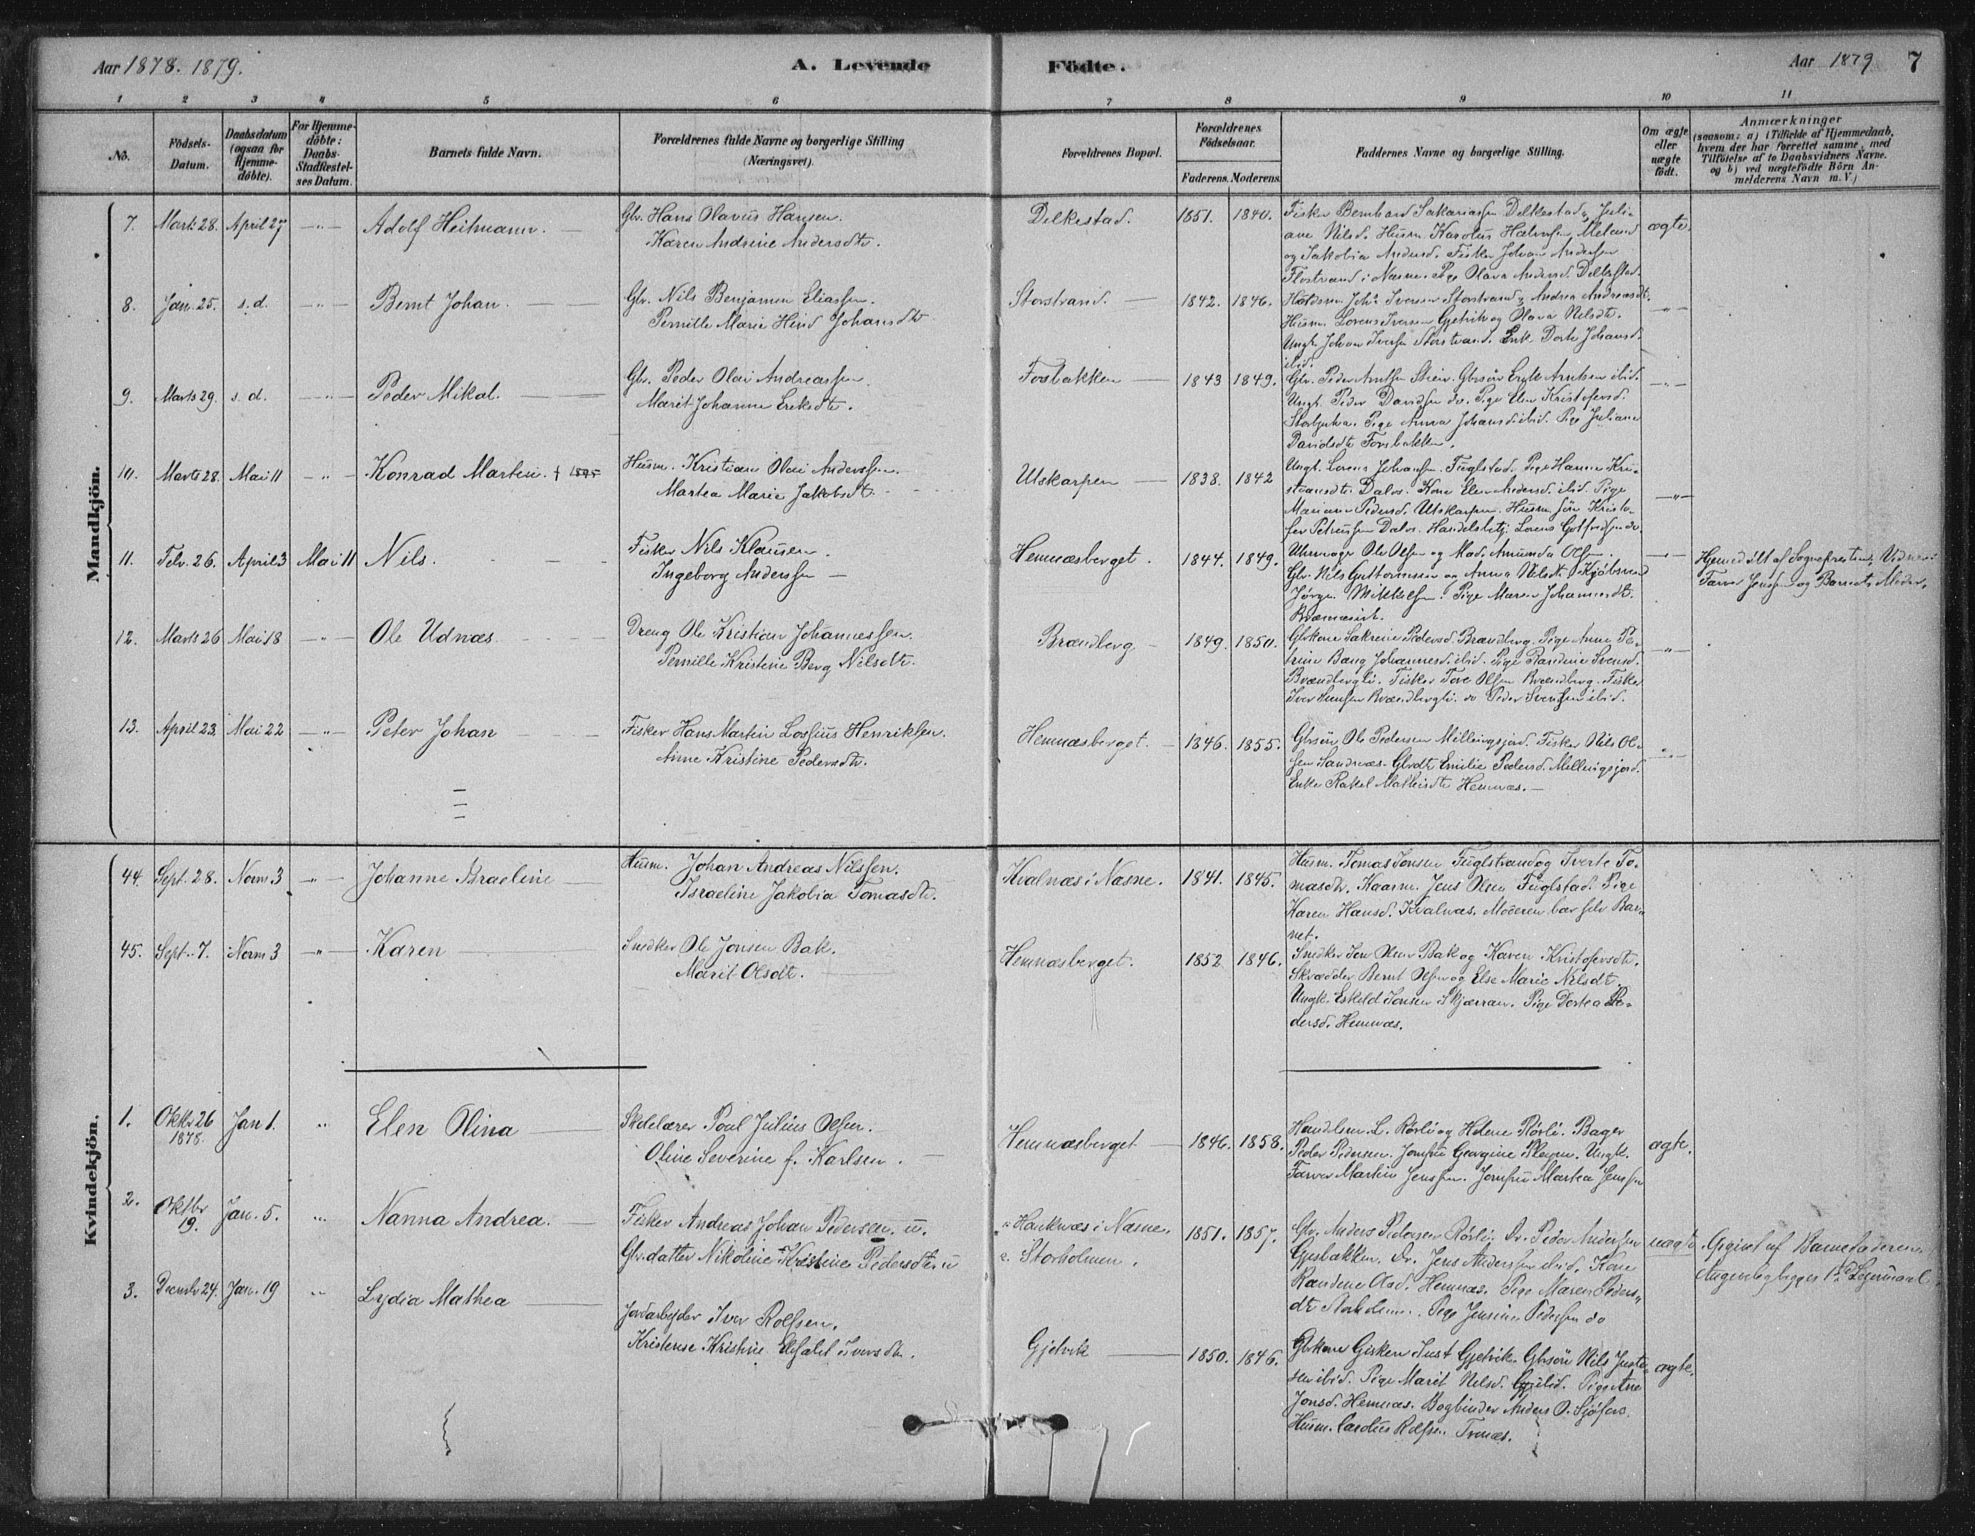 Aar 1878. 1879.
A. Levende Födte.
Aar 1879 7
1 2 3 4 5 6 7 8 9 10 11
No.
Födsels-Datum.
Daabsdatum (ogsaa for Hjemme-döbte).
For Hjemme-döbte: Daabs-Stadfæstel-ses Datum.
Barnets fulde Navn.
Forældrenes fulde Navne og borgerlige Stilling (Næringsvei).
Forældrenes Bopæl.
Forældrenes Födselsaar.
Faderens. Moderens.
Faddernes Navne og borgerlige Stilling.
Om ægte eller uægte födt.
Anmærkninger
(saasom: a) i Tilfælde af Hjemmedaab, hvem der har forrettet samme, med Tilföielse af to Daabsvidners Navne. og b) ved uægtefödte Börn Anmelderens Navn m. V.)
Mandkjön.
7. Marts 28. April 27 -"- Adolf Heitmann.
Gbr. Hans Olavus Hansen.
Karen Andrine Andersdtr.
Delkestad. 1851. 1840.
Fisker Bernhard Sakariassen Delkestad, Juli-
ane Nilsd. Husm. Karolus Meland
og Jakobia Andersd. Fisker Johan Andersen
Flostrand i Næsne. Pige Olava Andersd. Delkestad.
ægte.
8. Jan. 25. s.d. -"- Bernt Johan.
Gbr. Nils Benjamin Eliassen.
Pernille Marie Hind Johansdtr.
Storstrand. 1842. 1846.
Iversen Storstrand, Andrea Andreasdt.
Husm. Lorens Iversen Gjetvik og Olava Nilsdt.
Ungk. Johan Iversen Storstrand. Enk. Dorte Johansd.
ibid.
-"-
9. Marts 29. s.d. -"- Peder Mikal.
Gbr. Peder Olai Andreassen.
Marit Johanne Eriksdtr.
Forsbakken 1843 1849.
Gbr. Peder Arntsen Stein. Gbrsön Eryk Arntsen ibid.
Ungk. Peder Davidsen do. Pige Elen Kristofersd.
Pige Anna Johansd. ibid. Pige Juliane
Davidsdt. Forsbakken.
-"-
10. Marts 28. Mai 11 -"- Konrad Marten. + 1895
Husm. Kristian Olai Anderssen.
Martea Marie Jakobsdt.
Utskarpen 1838. 1842
Ungk. Lorens Johansen. Fuglstad. Pige Hanna Kri-
stiansdtr. Dalos. Kone Elen Andersd. ibid. Pige
Mariane Pedersd. Utskarpen. Husm. sön Kristo-
fer Petersen Dalos. Handelsbetj. Lorens Gotfredsen do.
-"-
11. Febr. 26. April 3 Mai 11 Nils.
Fisker Nils Klausen.
Ingeborg Anderssen
Hemnæsberget. 1844. 1849.
Uhrmager Ole Olsen og Mad. Amunda Olsen.
Gbr. Nils Guttormsen og Anna Nilsdt. Kjøbmand
Jørgen Mikkelsen. Pige Maren Johannesdt.
-"-
Hjemmedøbt af Sognepresten, Vidner:
Farver Jensen og Barnets Moder.
12. Marts 26 Mai 18 -"- Ole Udnæs.
Dreng Ole Kristian Johannessen.
Pernille Kristine Berg Nilsdtr.
Brændberg 1849. 1850.
Gbrkone Sakrine Pedersd. Brændberg. Pige Anne Pe-
trine Bang Johannesd. ibid. Pige Randine Svensd.
Brændbergli. Fisker Tore Olsen Brændberg. Fisker
Iver Jensen Brændbergli. do Peder Svensen ibid.
-"-
13. April 23. Mai 22 -"- Peter Johan
Fisker Hans Martin Lossius Henriksen.
Anne Kristine Pedersdtr.
Hemnæsberget. 1846. 1855.
Gbrsön Ole Pedersen Millingsjord. Fisker Nils Ol-
sen Sandnæs. Gbrdt. Emilie Pedersd. Millingsjord.
Enke Rakel Mathisdtr. Hemnæs.
-"-
Kvindekjön.
44. Sept. 28. Novm 3 -"- Johanne Israeline
Husm. Johan Andreas Nilssen.
Israeline Jakobia Tomasdtr.
Kvalnæs i Næsne. 1841. 1845.
Husm. Tomas Jonsen Fuglstrand og Sverte To-
masdtr. Kaarm. Jens Olsen Fuglstad. Pige
Karen Hansd. Kvalnæs. Moderen bar selv Bar-
net.
45. Sept. 7. Novm 3 -"- Karen
Snedker Ole Jonsen Bak.
Marit Olsdt.
Hemnæsberget. 1852 1846.
Snedker Jon Olsen Bak og Karen Kristofersdtr.
Skrædder Bernt Olsen og Else Marie Nilsdt.
Ungk. Eskild Jonsen Skjærran. Pige Dortea Pe-
dersd. Hemnæs.
1. Oktbr 26 1878. Jan 1. " Elen Olina
Skolelærer Poul Julius Olsen.
Oline Severine f. Karlsen.
Hemnæsberget 1846. 1858.
Handlsm. L. Rörli og Helene Rörli. Bager
Peder Pedersen. Jomfru Georgine Pleym. Ungk.
Farver Martin Jenssen. Jomfru Martea Jenssen
ægte.
2. Oktbr 19. Jan. 5. " Nanna Andrea.
Fisker Andreas Johan Pedersen. u.
Gbr.datter Nikoline Kristine Pedersdtr. u
Hauknæs i Næsne.
Storholmen.
1851. 1857.
Gbr. Anders Pedersen Rörli. Dr. Peder Andersen
Gjesbakken. Dr. Jens Anderssen ibid. Kone
Randine Olsd. Hemnæs. Pige Maren Peders-
dtr Storholmen. Pige Jensine Pedersen do
uægte
Opgivet af Barnefaderen.
Angivelig begges 1ste Leiermaal.
3. Decmbr 24. Jan. 19 " Lydia Mathea
Jordarbejder Iver Rolfsen.
Kristense Kristine Elisabet Iversdtr.
Gjetvik 1850. 1846.
Gbrkone Gisken Just Gjetvik. Gbrsön Nils Juste-
sen ibid. Pige Marit Nilsd. ibid. Pige Ane
Jonsd. Hemnæs. Bogbinder Anders O. Sjöfors.
Husm. Cardius Rolfsen Tvenæs.
ægte.